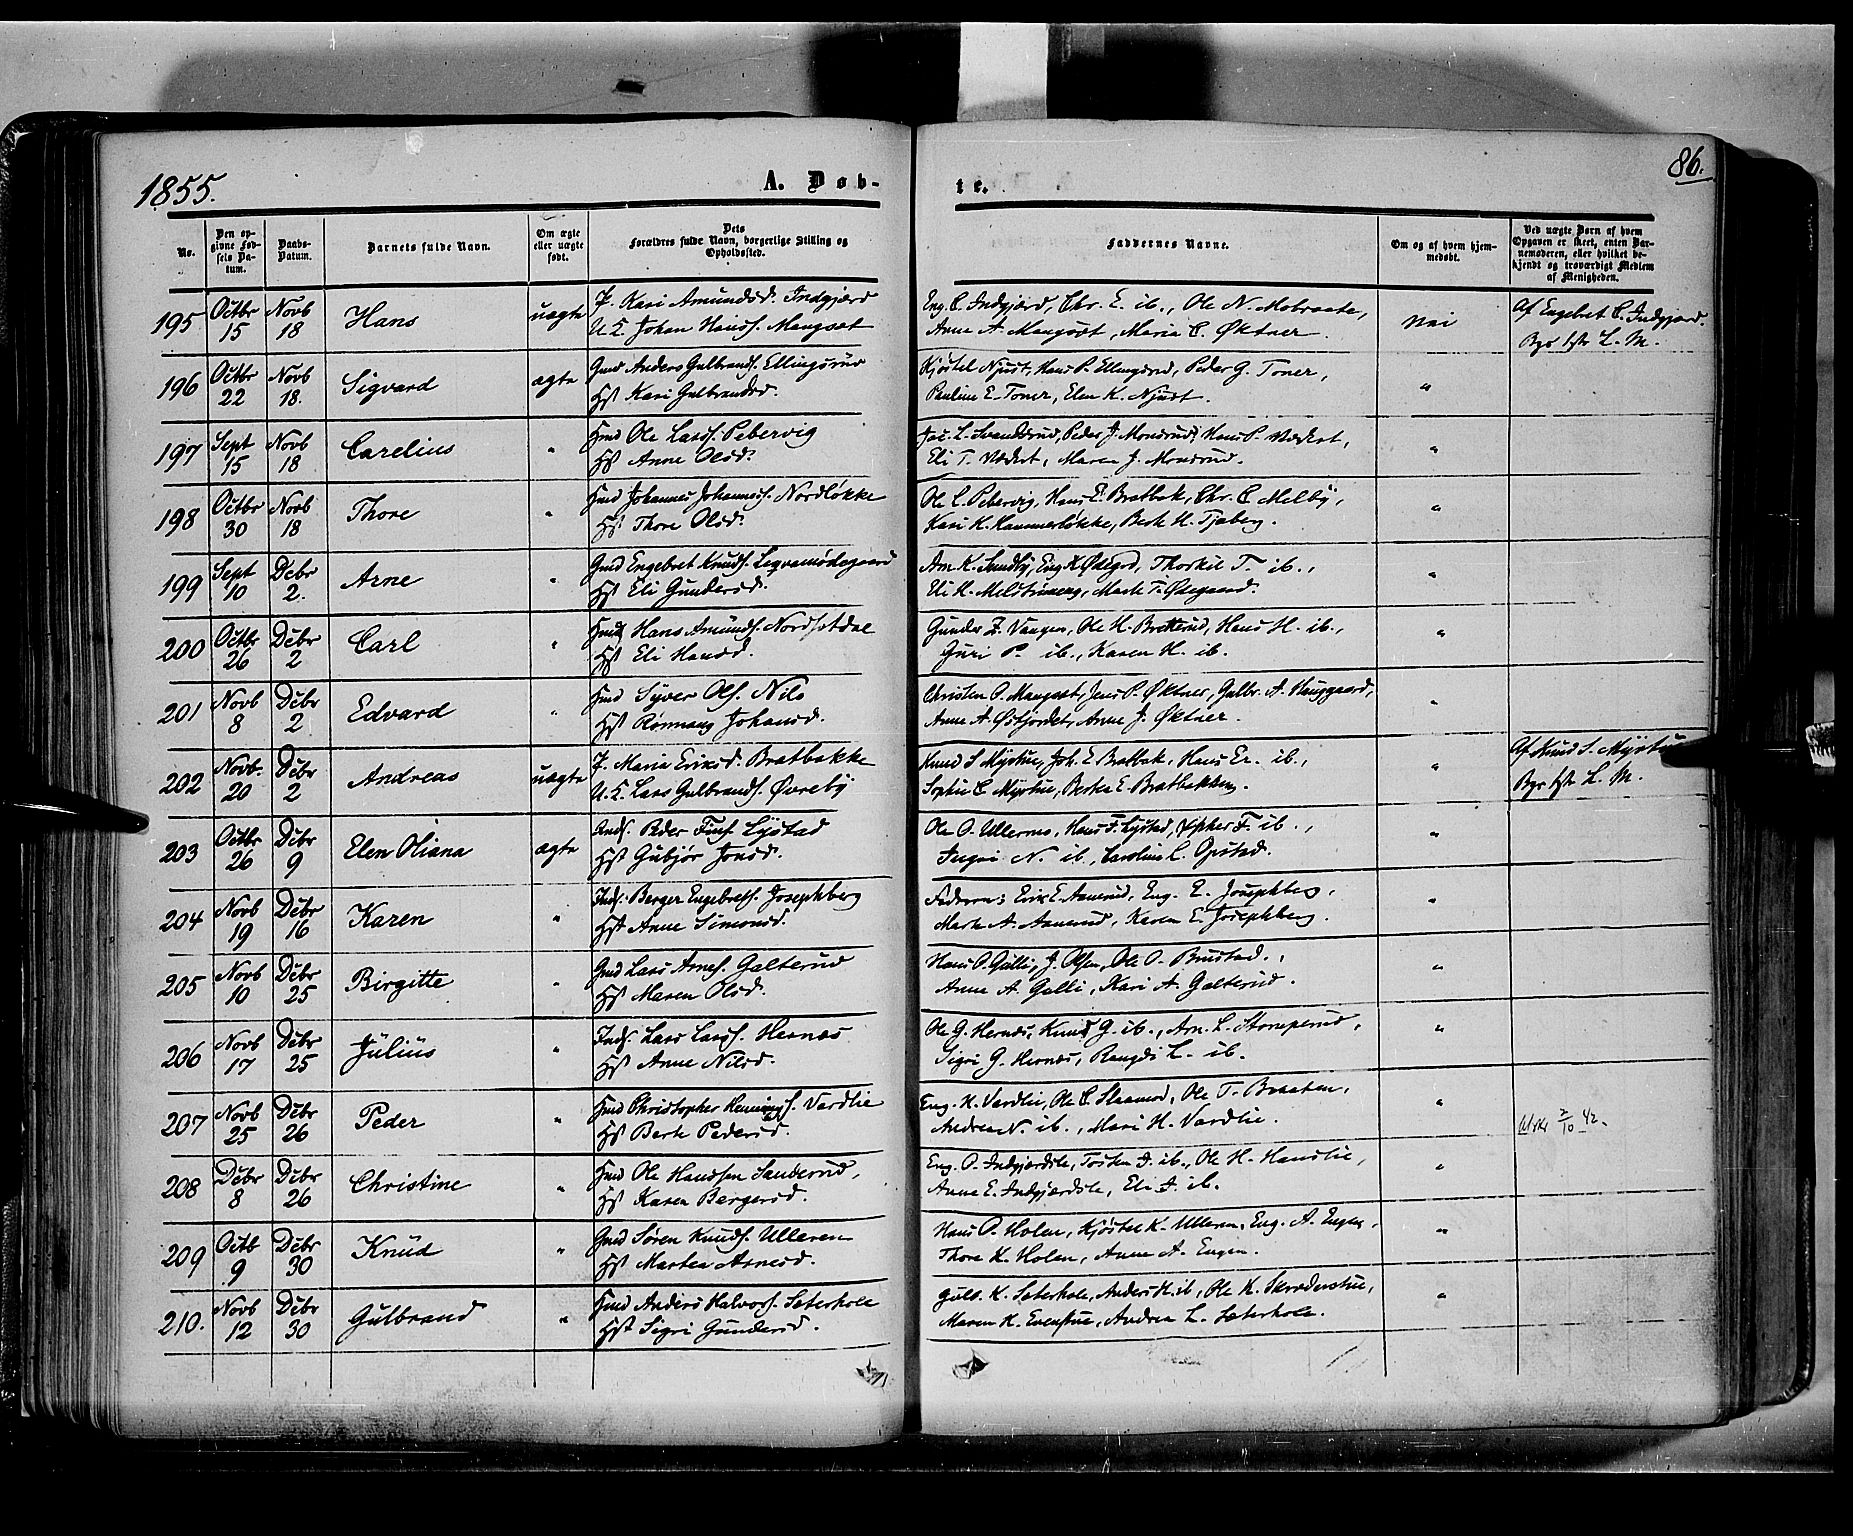 1855.
A. Døb-
te.
86.
No.
Den op-
givne Fød-
sels Da-
tum.
Daabs-
Datum.
Barnets fulde Navn.
Om ægte
eller uægte
født.
Dets
Forældres fulde Navn, borgerlige Stilling og
Opholdssted.
Faddernes Navne.
Om og af hvem hjem-
medøbt.
Ved uægte Børn af hvem
Opgaven er skeet, enten Bar-
nemoderen, eller hvilket be-
kjendt og troværdigt Medlem
af Menigheden.
195 Octbr 15 Novb 18 Hans uægte P. Kari Amundsd. Indgjærd
U.C. Johan Hansf. Mangset
Eng. C. Indgjærd, Chr. E. ib., Ole N. Mobraate,
Anne A. Mangset, Maria C. Øktner.
Nei
Af Engebret C. Indgjærd.
L. M.
196 Octbr 22 Novb 18. Sigvard ægte Gmd Anders Gulbrandf. Ellingsrud
Hst Kari Gulbrandsd.
Kjøstel Njust, Hans P. Ellingsrud, Peder G. Toner,
Pauline E. Toner, Elen K. Njust.
"
197 Sept 15 Novb 18 Carelius " Hmd Ole Larsf. Pebervig
Hst Anne Olsd.
Peder J. Mondrud, Hans P.
Eli T. Maren J. Mondrud.
"
198 Octbr 30 Novb 18 Thore " Hmd Johannes Johannesf. Nordløkke
Hst Thore Olsd.
Ole L. Pebervig, Hans E. Bratbak, Chr. C. Melby,
Kari H. Kammerløkke, Berte H. Tjaberg.
"
199 Sept 10 Debr 2. Arne " Gmd Engebret Knudf.
Hst Eli Gundersd.
Am. K. Sundby, Eng. K. Ødegrd, Thorkil T. ib.,
Marte T. Ødegaard.
"
200 Octbr 26 Debr 2 Carl " Hmd Hans Amundf. Nordsetdal
Hst Eli Hansd.
Gunder Vangen, Ole H. Bratterud, Hans H. ib.,
Guri P. ib., Karen H. ib.
"
201 Novb 8 Debr 2 Edvard " Hmd Syver Olf. Nilo
Hst Rønnaug Johansd.
Christen O. Mangset, Jens P. Øktner, Gulbr. A. Hauggaard,
Anne A. Østfjordet, Anne J. Øktner.
"
202 Novb. 20 Debr 2 Andreas uægte P. Maria Eriksd. Bratbakke
U.C. Lars Gulbrandf. Øvreby
Knud S. Myrstue, Joh. E. Bratbak, Hans Er. ib.,
Sophie C. Myrstue, Berthe E. Bratbakken.
"
Af Knud S. Myrstu
L. M.
203 Octbr 26 Debr 9 Elen Oliana ægte Indf. Peder Finf. Lystad
Hst Gubjør Jonsd.
Ole O. Ullernes, Hans F. Lystad, F. ib.,
Ingri N. ib., Caroline L. Opstad.
"
204 Novb 19 Debr 16 Karen " Indf. Berger Engebretf. Josephberg
Hst Anne Simonsd.
Faderen, Erik E. Aamerud, Eng. E. Josephberg,
Marte A. Aamerud, Karen E. Josephberg.
"
205 Novb 10 Debr 25 Birgitte " Gmd Lars Arnef. Galterud
Hst Maren Olsd.
Hans O. Galli, J. Olsen, Ole O. Brustad.,
Anne A. Galli, Kari A. Galterud.
"
206 Novb 17 Debr 25 Julius " Indf. Lars Larsf. Hernæs
Hst Anne Nilsd.
Ole G. Hernæs, Knud G. ib., Arn. L. Storeperud,
Sigri G. Hernæs, Rangdi L. ib.
"
207 Novb 25 Debr 26 Peder " Hmd Christopher Henningf. Vardlie
Hst Berte Pedersd.
Eng. H. Vardlie, Ole C. Slaamod, Ole T. Braaten,
Andrea N. ib., Mari H. Vardlie.
"
2/10 42.
208 Debr 8 Debr 26 Christine " Hmd Ole Hansen Sanderud,
Hst Karen Bergersd.
Eng. O. Indgjærdsle, Tosten I. ib., Ole H. Hanslie,
Anne E. Indgjærdsle, Eli I. ib.
"
209 Octb 9 Debr 30 Knud " Gmd Søren Knudf. Ulleren
Hst Marthea Arnesd.
Hans O. Holen, Kjøstel K. Ulleren, Eng. A. Engen,
Thore K. Holen, Anne A. Engen.
"
210. Novb 12 Debr 30 Gulbrand " Hmd Anders Halvorf. Seterhole
Hst Sigri Gundersd.
Gulb. K. Seterhole, Anders H. ib, Ole K. Skræderstue,
Maren K. Evenstue, Andrea L. Seterhole.
"